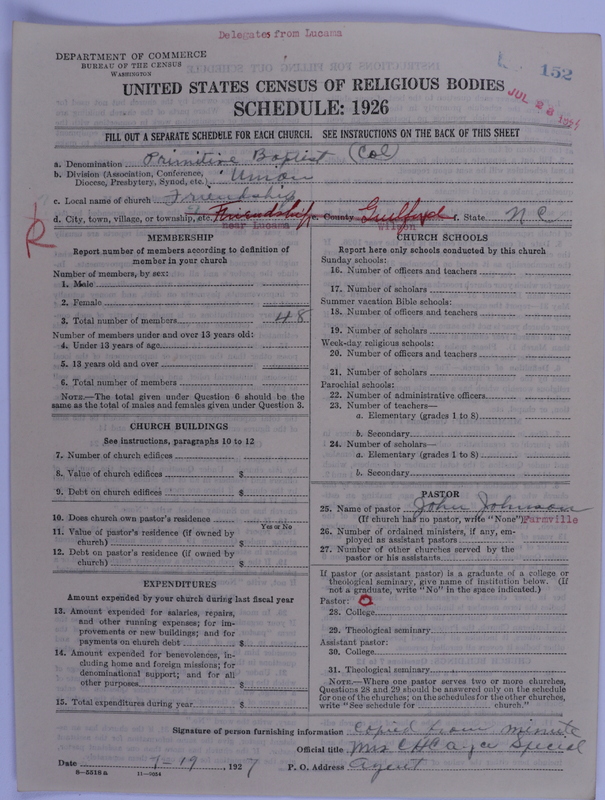 Delegates from Lucama
DEPARTMENT OF COMMERCE
BUREAU OF THE CENSUS
WASHINGTON
152
JUL 28
UNITED STATES CENSUS OF RELIGIOUS BODIES
SCHEDULE: 1926
FILL OUT A SEPARATE SCHEDULE FOR EACH CHURCH. SEE INSTRUCTIONS ON THE BACK OF THIS SHEET
a. Denomination Primitive Baptist (Col)
b. Division (Association, Conference, Diocese, Presbytery, Synod, etc.) Union
c. Local name of church Friendship
d. City, town, village, or township, etc. Friendship e. County Guilford f. State N C
near Lucama Wilson
R
MEMBERSHIP
Report number of members according to definition of
member in your church
Number of members, by sex:
1. Male
2. Female
3. Total number of members 48
Number of members under and over 13 years old:
4. Under 13 years of age
5. 13 years old and over
6. Total number of members
NOTE.—The total given under Question 6 should be the
same as the total of males and females given under Question 3.
CHURCH BUILDINGS
See instructions, paragraphs 10 to 12
7. Number of church edifices
8. Value of church edifices $
9. Debt on church edifices $
10. Does church own pastor's residence
Yes or No
11. Value of pastor's residence (if owned by
church) $
12. Debt on pastor's residence (if owned by
church) $
EXPENDITURES
Amount expended by your church during last fiscal year
13. Amount expended for salaries, repairs,
and other running expenses; for im-
provements or new buildings; and for
payments on church debt $
14. Amount expended for benevolences, in-
cluding home and foreign missions; for
denominational support; and for all
other purposes $
15. Total expenditures during year $
CHURCH SCHOOLS
Report here only schools conducted by this church
Sunday schools:
16. Number of officers and teachers
17. Number of scholars
Summer vacation Bible schools:
18. Number of officers and teachers
19. Number of scholars
Week-day religious schools:
20. Number of officers and teachers
21. Number of scholars
Parochial schools:
22. Number of administrative officers
23. Number of teachers—
a. Elementary (grades 1 to 8)
b. Secondary
24. Number of scholars—
a. Elementary (grades 1 to 8)
b. Secondary
PASTOR
25. Name of pastor John Johnson
(If church has no pastor, write "None") Farmville
26. Number of ordained ministers, if any, em-
ployed as assistant pastors
27. Number of other churches served by the
pastor or his assistants
If pastor (or assistant pastor) is a graduate of a college or
theological seminary, give name of institution below. (If
not a graduate, write "No" in the space indicated.)
Pastor:
28. College
29. Theological seminary
Assistant pastor:
30. College
31. Theological seminary
NOTE.—Where one pastor serves two or more churches,
Questions 28 and 29 should be answered only on the schedule
for one of the churches; on the schedules for the other churches,
write "See schedule for church."
Signature of person furnishing information Copied from minute
Official title Mrs C H Cayce Special
Date 7-19, 1927 P. O. Address Agent
8-5518a 11-9034